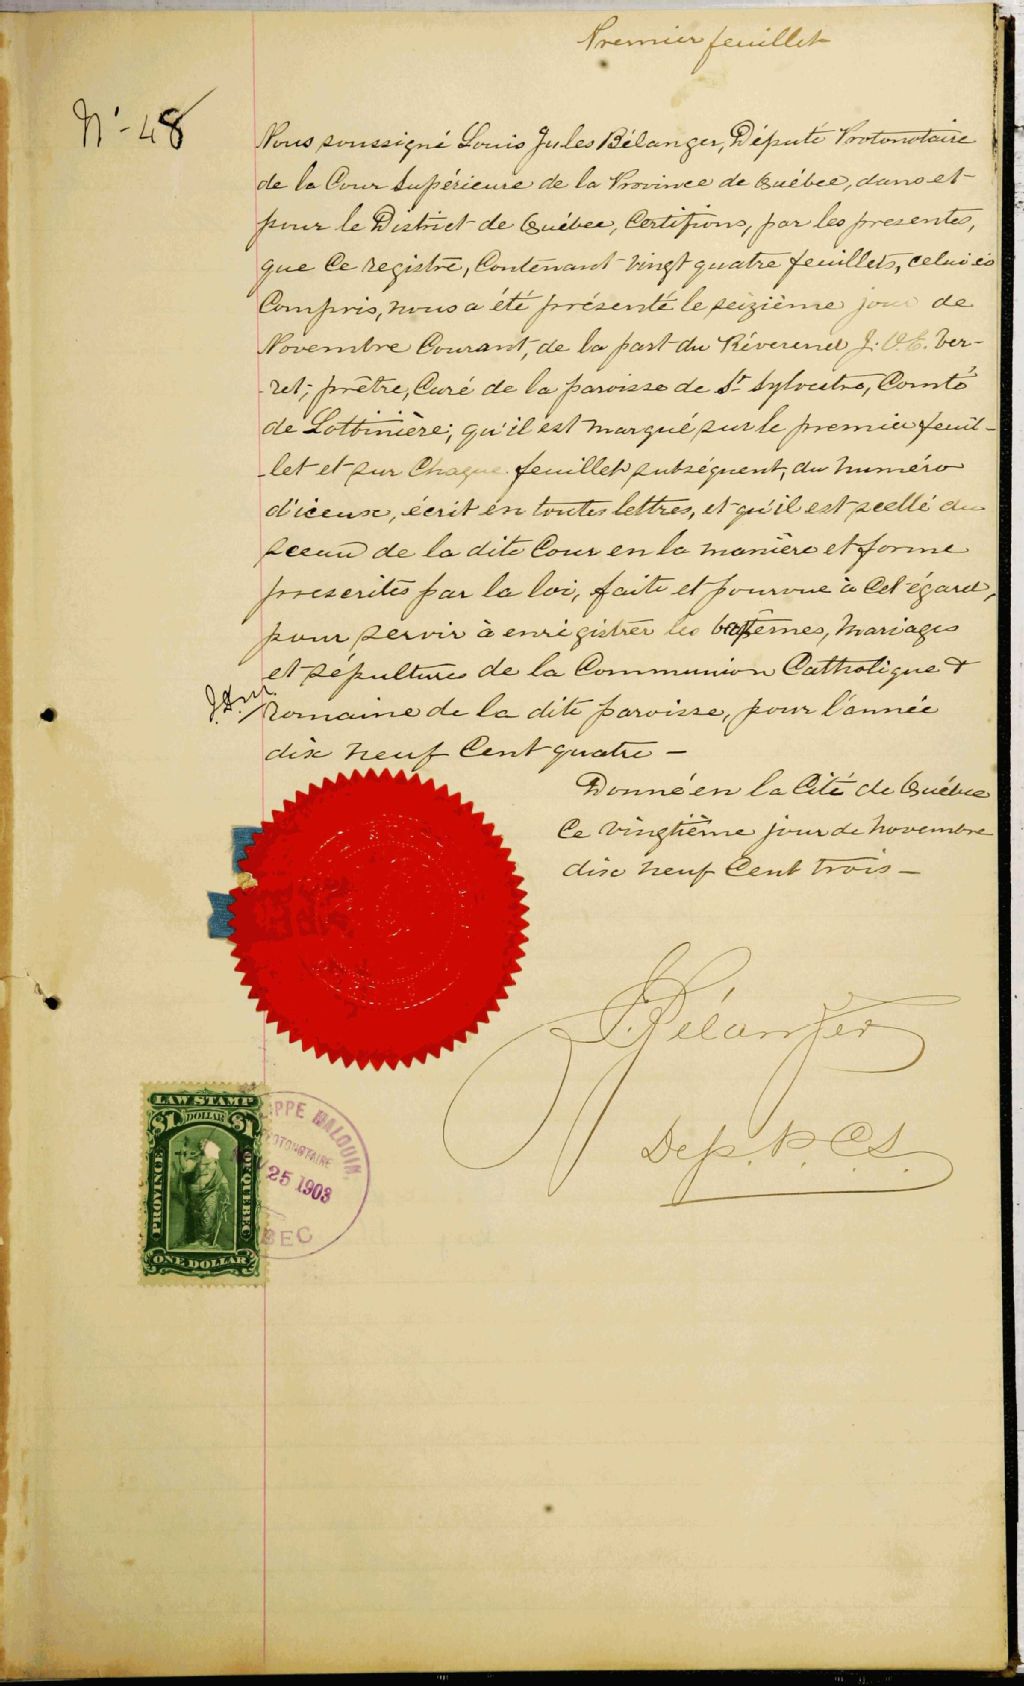 Premier feuillet
N° - 48
Nous soussigné Louis Jules Bélanger, Député Protonotaire
de la Cour Supérieure de la Province de Québec, dans et
pour le District de Québec, Certifions, par les presentes,
que Ce registre, Contenant vingt quatre feuillets, celui ci
Compris, nous a été présenté le seizième jour de
Novembre Courant, de la part du Réverend J. O. E. Ver-
-ret, prêtre, Curé de la paroisse de St Sylvestre, Comté
de Lotbinière; qu'il est marqué sur le premier feuil-
-let et sur Chaque feuillet subséquent, du numéro
d'iceux, écrit en toutes lettres, et qu'il est scellé du
sceau de la dite Cour en la manière et forme
prescrites par la loi, faite et pourvue à Cet égard,
pour servir à enrégistrer les baptêmes, Mariages
et sépultures de la Communion Catholique &
romaine de la dite paroisse, pour l'année
dix neuf Cent quatre —
Donné en la Cité de Québec
Ce vingtième jour de novembre
dix neuf Cent trois —
Bélanger
Dep. P. C. S.
LAW STAMP
$1 DOLLAR $1
PROVINCE OF QUEBEC
ONE DOLLAR
PPE MALOUIN.
OTONOTAIRE
25 1903
BEC